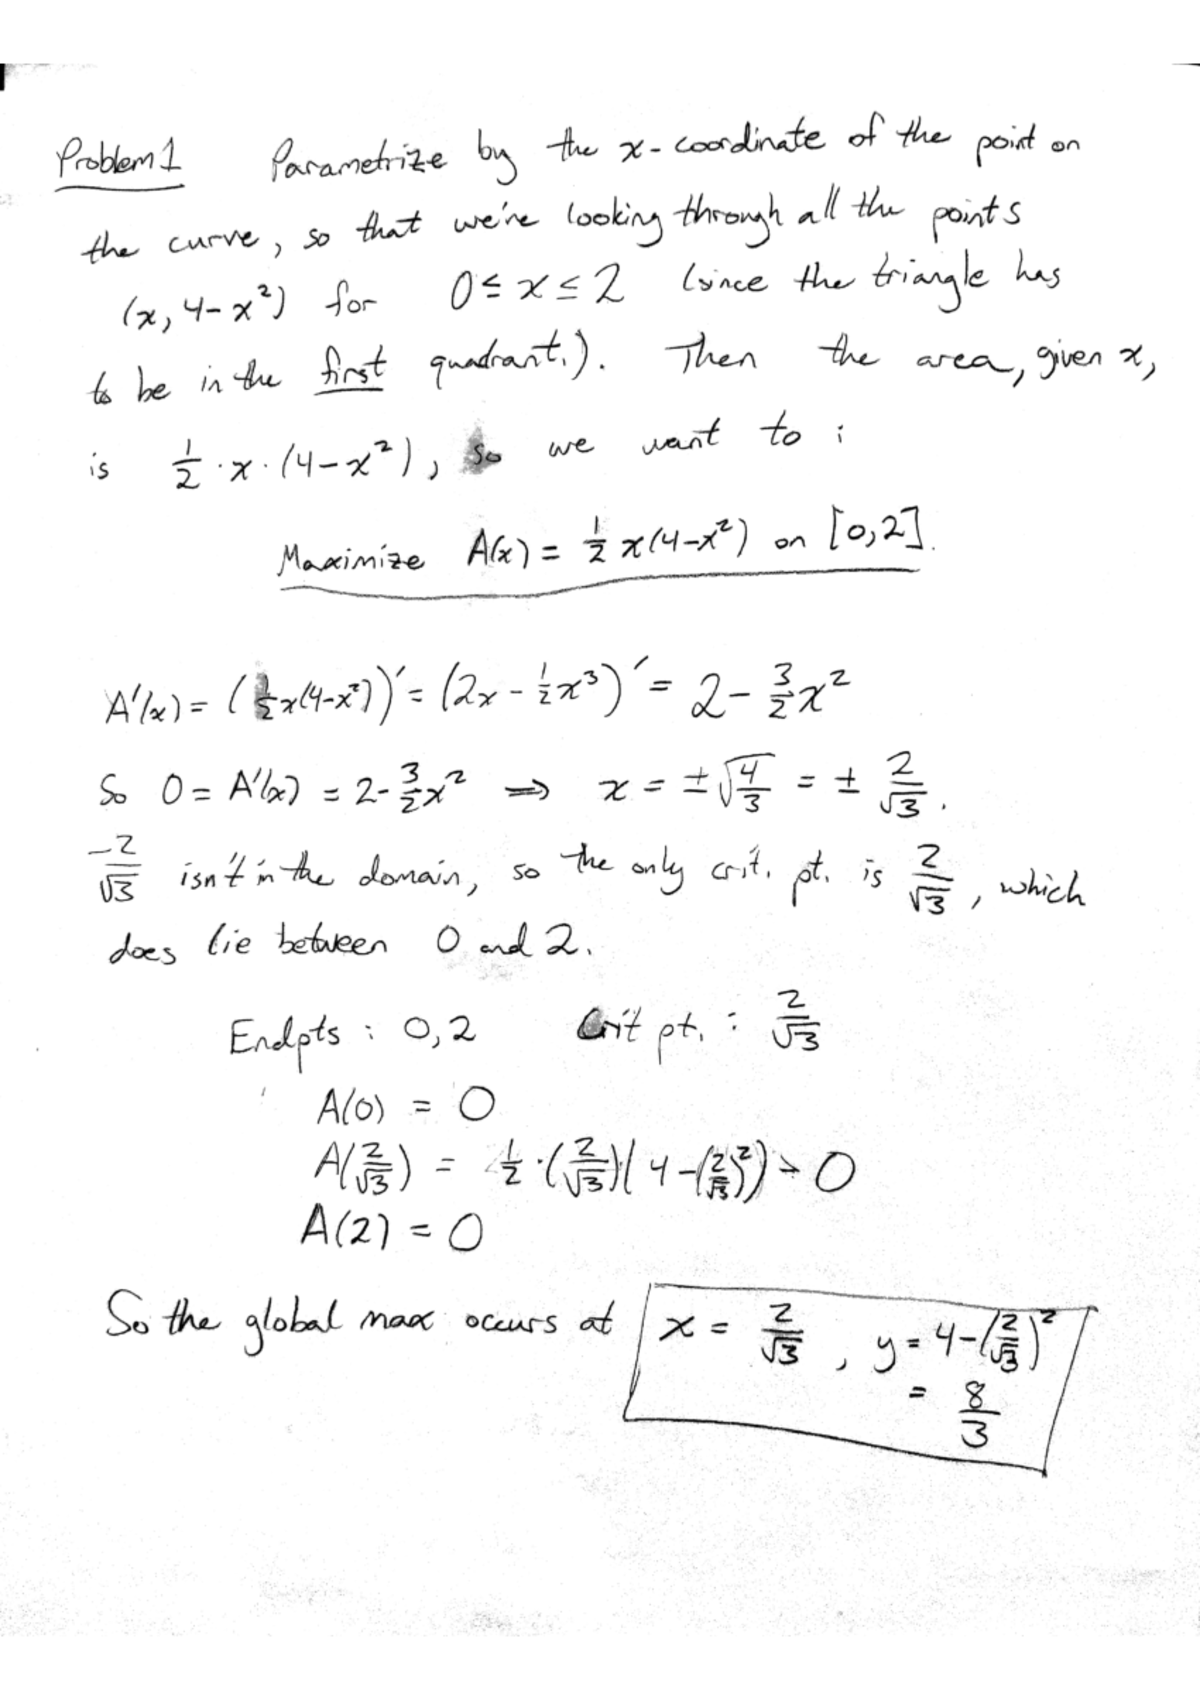 Problem 1 Parametrize by the x-coordinate of the point on
the curve, so that we're looking through all the points
(x, 4-x²) for 0 ≤ x ≤ 2 (since the triangle has
to be in the first quadrant.). Then the area, given x,
is 1/2 · x · (4-x²), so we want to:
Maximize A(x) = 1/2 x(4-x²) on [0,2].
A'(x) = (1/2 x(4-x²))' = (2x - 1/2 x³)' = 2 - 3/2 x²
So 0 = A'(x) = 2 - 3/2 x² ⟹ x = ±√(4/3) = ± 2/√3.
-2/√3 isn't in the domain, so the only crit. pt. is 2/√3, which
does lie between 0 and 2.
Endpts: 0,2 Crit pt.: 2/√3
A(0) = 0
A(2/√3) = 1/2 · (2/√3)(4-(2/√3)²) > 0
A(2) = 0
So the global max occurs at x = 2/√3, y = 4-(2/√3)²
= 8/3